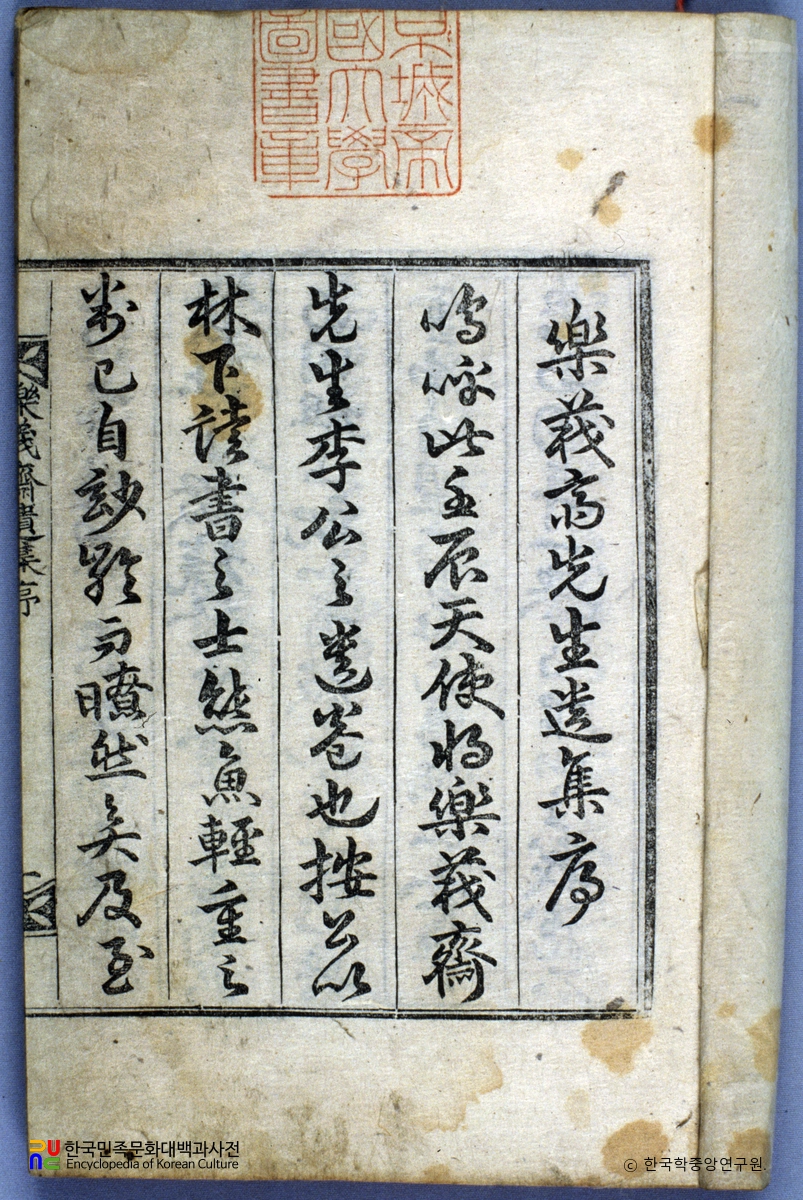 京城帝
國大學
圖書章
樂義齋先生遺集序
嗚呼此壬辰天使將樂義齋
先生李公之遺卷也按公以
林下讀書之士熊魚輕重之
判已自玅齡而瞭然矣及至
樂義齋遺集序
한국민족문화대백과사전
Encyclopedia of Korean Culture
ⓒ 한국학중앙연구원